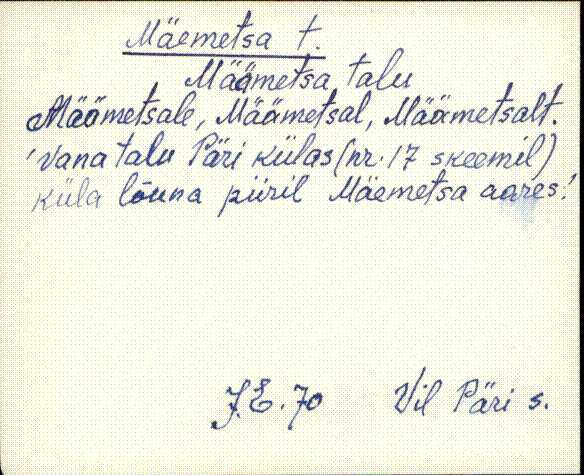 Mäemetsa t.
Määmetsa talu
Määmetsale, Määmetsal, Määmetsalt.
'Vana talu Päri külas (nr. 17 skeemil)
küla lõuna piiril Mäemetsa aares.'
J.E. 70 Vil Päri s.